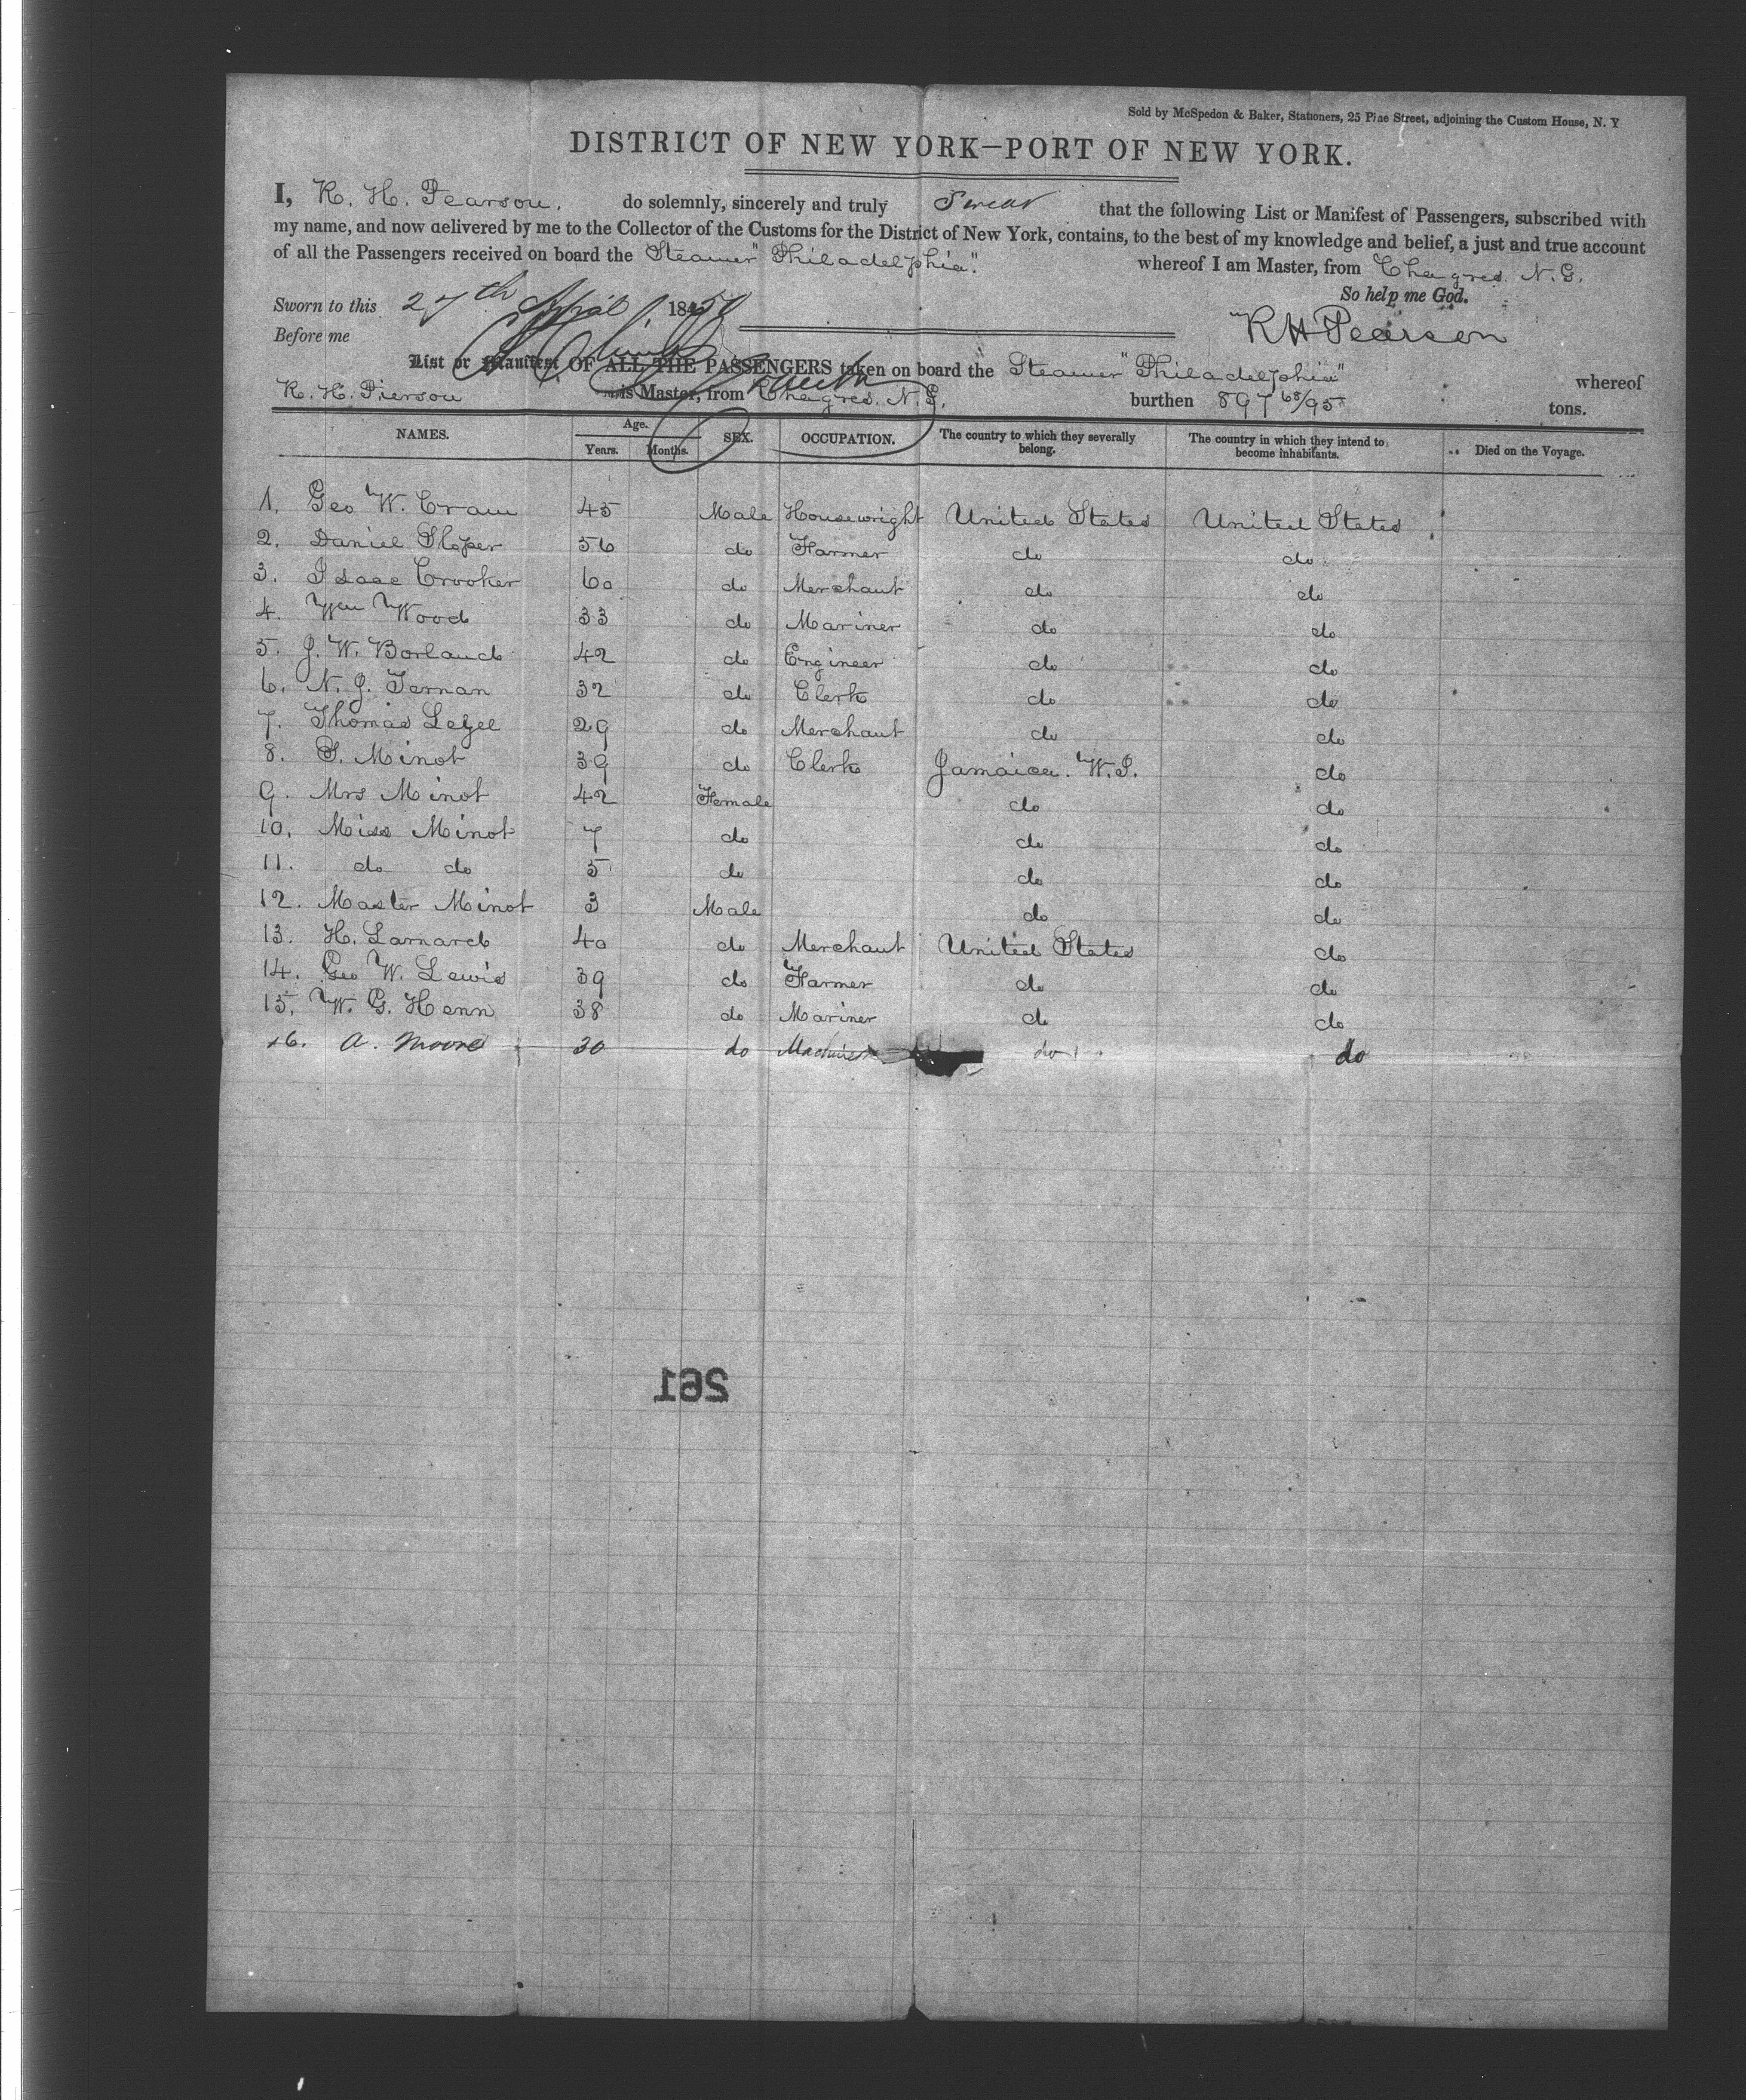 Sold by McSpedon & Baker, Stationers, 25 Pine Street, adjoining the Custom House, N. Y
DISTRICT OF NEW YORK—PORT OF NEW YORK.
I, R. H. Pearson, do solemnly, sincerely and truly Swear that the following List or Manifest of Passengers, subscribed with
my name, and now delivered by me to the Collector of the Customs for the District of New York, contains, to the best of my knowledge and belief, a just and true account
of all the Passengers received on board the Steamer "Philadelphia". whereof I am Master, from Chagres. N. G.
So help me God.
Sworn to this 27th April 1850
Before me
R H Pearson
List or Manifest OF ALL THE PASSENGERS taken on board the Steamer "Philadelphia" whereof
R. H. Pierson is Master, from Chagres. N. G. burthen 897 68/95 tons.
NAMES. Age. Years. Months. SEX. OCCUPATION. The country to which they severally belong. The country in which they intend to become inhabitants. Died on the Voyage.
1. Geo W. Cram 45 Male Housewright United States United States
2. Daniel Sloper 56 do Farmer do do
3. Isaac Crooker 60 do Merchant do do
4. Wm Wood 33 do Mariner do do
5. J. W. Borland 42 do Engineer do do
6. N. J. Ternan 32 do Clerk do do
7. Thomas 29 do Merchant do do
8. S. Minot 39 do Clerk Jamaica. W.I. do
9. Mrs Minot 42 Female do do
10. Miss Minot 7 do do do
11. do do 5 do do do
12. Master Minot 3 Male do do
13. H. Larnard 40 do Merchant United States do
14. Geo W. Lewis 39 do Farmer do do
15. W. G. Henn 38 do Mariner do do
16. A. Moore 30 do Machinist do do
261